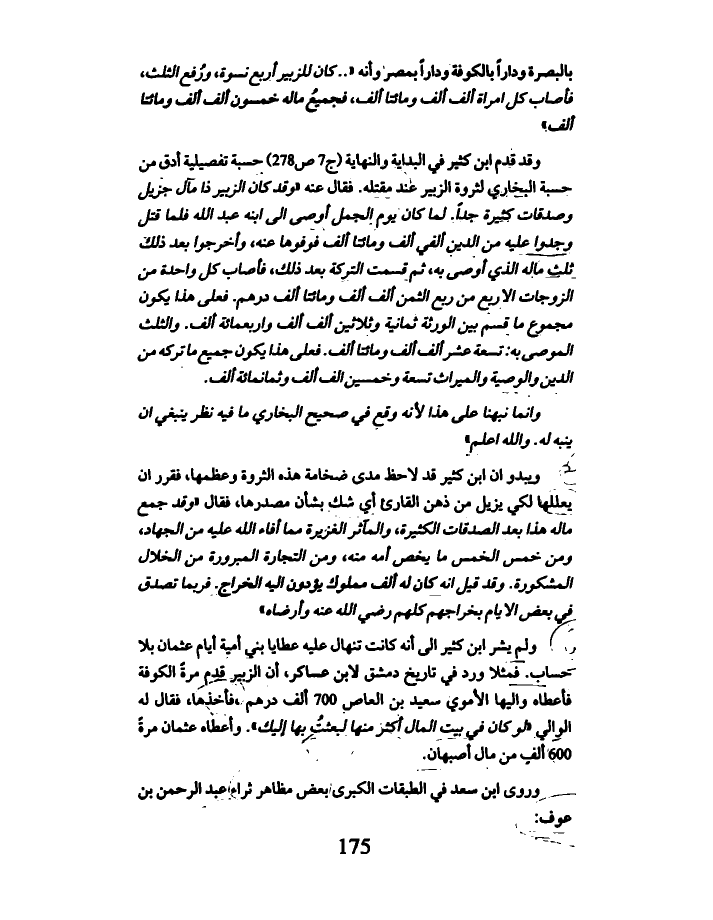 بالبصرة وداراً بالكوفة وداراً بمصر وأنه «..كان للزبير أربع نسوة، ورُفع الثلث،
فأصاب كل امراة ألف ألف ومائتا ألف، فجميعُ ماله خمسون ألف ألف ومائتا
ألف»
وقد قدم ابن كثير في البداية والنهاية (ج7 ص278) حسبة تفصيلية أدق من
حسبة البخاري لثروة الزبير عند مقتله. فقال عنه «وقد كان الزبير ذا مآل جزيل
وصدقات كثيرة جداً. لما كان يوم الجمل أوصى الى ابنه عبد الله فلما قتل
وجدوا عليه من الدين ألفي ألف ومائتا ألف فوفوها عنه، وأخرجوا بعد ذلك
ثلث ماله الذي أوصى به، ثم قسمت التركة بعد ذلك، فأصاب كل واحدة من
الزوجات الاربع من ربع الثمن ألف ألف ومائتا ألف درهم. فعلى هذا يكون
مجموع ما قسم بين الورثة ثمانية وثلاثين ألف ألف واربعمائة ألف. والثلث
الموصى به: تسعة عشر ألف ألف ومائتا ألف. فعلى هذا يكون جميع ما تركه من
الدين والوصية والميراث تسعة وخمسين الف ألف وثمانمائة ألف.
وانما نبهنا على هذا لأنه وقع في صحيح البخاري ما فيه نظر ينبغي ان
ينبه له. والله اعلم»
ويبدو ان ابن كثير قد لاحظ مدى ضخامة هذه الثروة وعظمها، فقرر ان
يعللها لكي يزيل من ذهن القارئ أي شك بشأن مصدرها، فقال «وقد جمع
ماله هذا بعد الصدقات الكثيرة، والمآثر الغزيرة مما أفاء الله عليه من الجهاد،
ومن خمس الخمس ما يخص أمه منه، ومن التجارة المبرورة من الخلال
المشكورة. وقد قيل انه كان له ألف مملوك يؤدون اليه الخراج. فربما تصدق
في بعض الايام بخراجهم كلهم رضي الله عنه وأرضاه»
ولم يشر ابن كثير الى أنه كانت تنهال عليه عطايا بني أمية أيام عثمان بلا
حساب. فمثلا ورد في تاريخ دمشق لابن عساكر، أن الزبير قدم مرةً الكوفة
فأعطاه واليها الأموي سعيد بن العاص 700 ألف درهم، فأخذها، فقال له
الوالي «لو كان في بيت المال أكثر منها لبعثتُ بها إليك». وأعطاه عثمان مرةً
600 ألف من مال أصبهان.
وروى ابن سعد في الطبقات الكبرى بعض مظاهر ثراء عبد الرحمن بن
عوف:
175